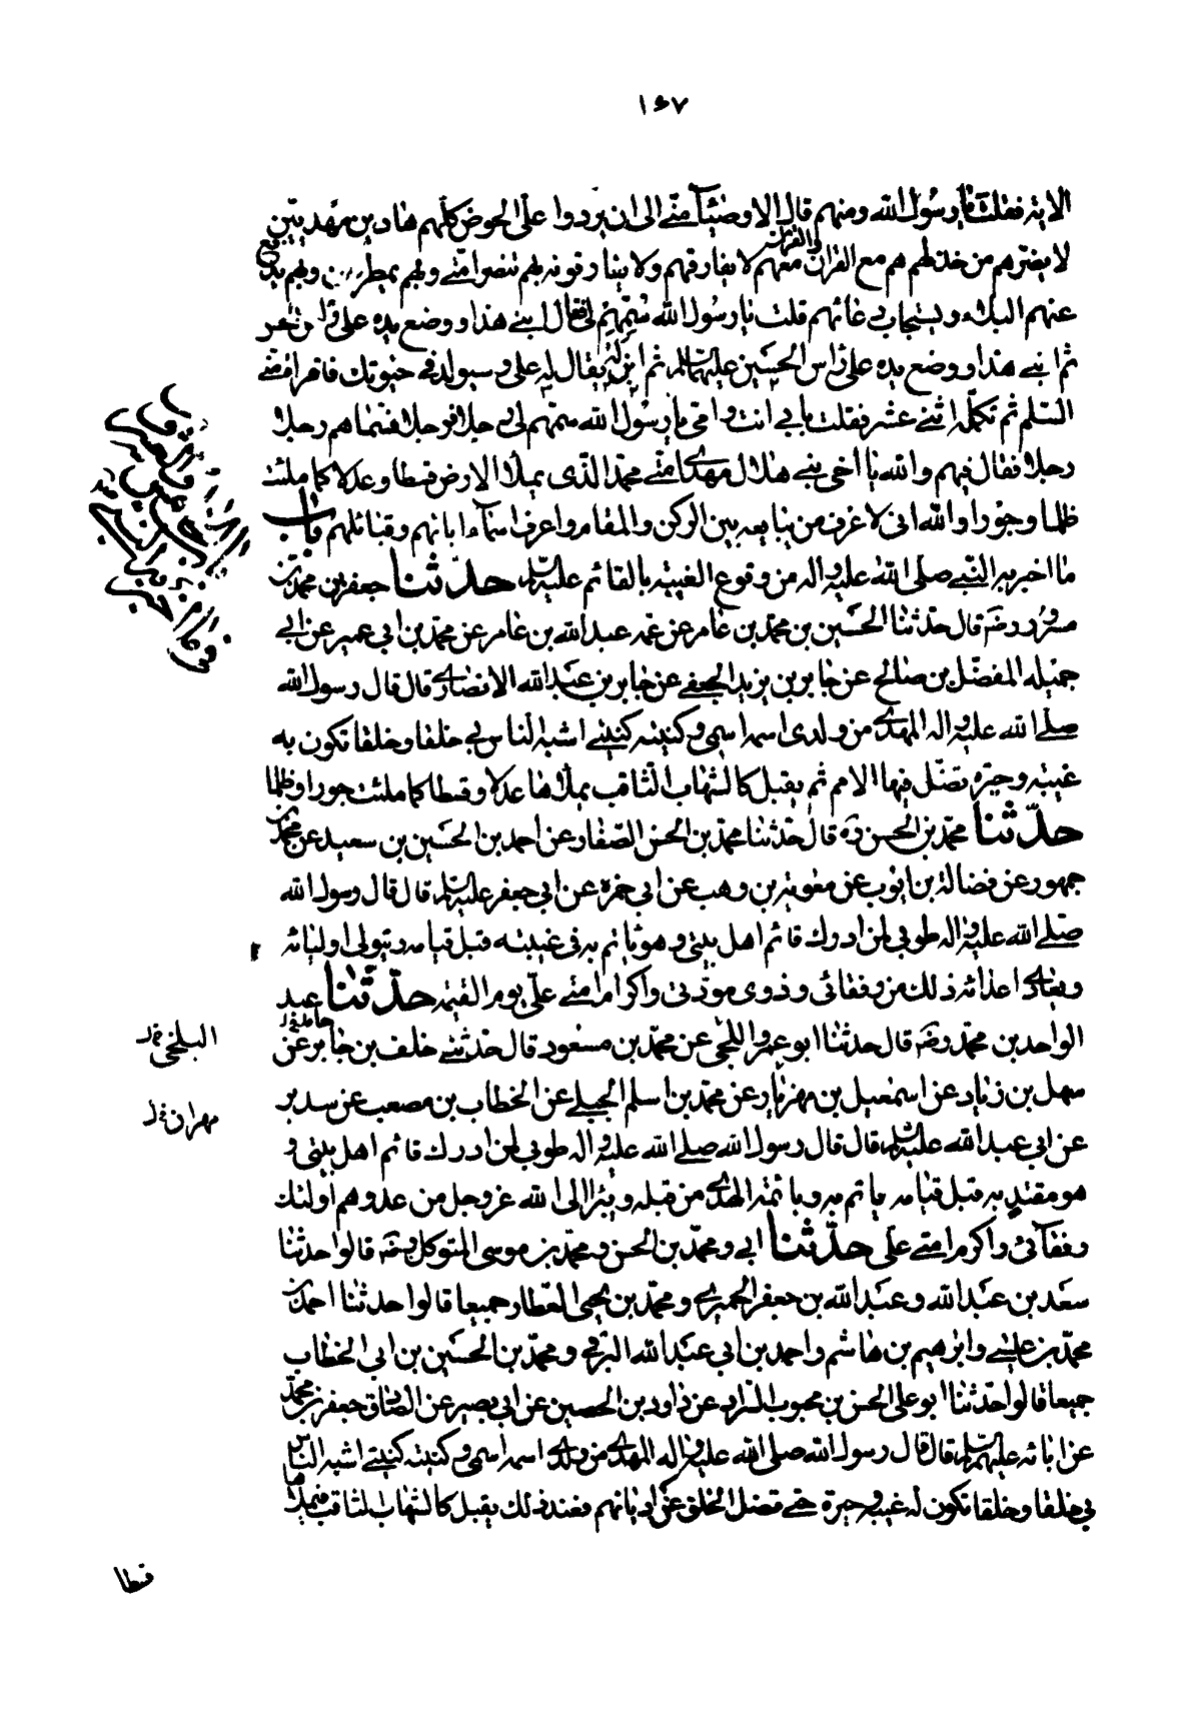 ۱۶۷
الاية فقلت يا رسول الله ومنهم قال الاوصياء منى الى ان يردوا على الحوض كلهم هاد بن مهديين
لا يضرهم من خذلهم هم مع القران والقران معهم لا يفارقهم ولا يفارقونه بهم تنصر امتى وبهم يمطرون وبهم يدفع
عنهم البلاء ويستجاب دعائهم قلت يا رسول الله سمّهم لى فقال ابنى هذا ووضع يده على راس الحسن
ثم ابنى هذا ووضع يده على راس الحسين عليهما السلم ثم ابن له يقال له على وسيولد فى حيوتك فاقراه منى
السلم ثم تكمله اثنى عشر فقلت بابى انت وامى يا رسول الله سمّهم لى رجلا فرجلا فسماهم رجلا
رجلا فقال فيهم والله يا اخى بنى هلال مهدى امتى محمد الذى يملأ الارض قسطا وعدلا كما ملئت
ظلما وجورا والله انى لاعرف من يبايعه بين الركن والمقام واعرف اسماء ابائهم وقبائلهم باب
ما اخبر به النبى صلى الله عليه واله من وقوع الغيبة بالقائم عليه السلم حدثنا جعفر بن محمد بن
مسرور رضه قال حدثنا الحسين بن محمد بن عامر عن عمه عبد الله بن عامر عن محمد بن ابى عمير عن ابى
جميله المفضل بن صالح عن جابر بن يزيد الجعفى عن جابر بن عبد الله الانصارى قال قال رسول الله
صلى الله عليه واله المهدى من ولدى اسمه اسمى وكنيته كنيتى اشبه الناس بى خلقا وخلقا تكون به
غيبة وحيرة تضل فيها الامم ثم يقبل كالشهاب الثاقب يملاها عدلا وقسطا كما ملئت جورا وظلما
حدثنا محمد بن الحسن ره قال حدثنا محمد بن الحسن الصفار عن احمد بن الحسين بن سعيد عن محمد بن
جمهور عن فضالة بن ايوب عن معوية بن وهب عن ابى حمزه عن ابى جعفر عليه السلم قال قال رسول الله
صلى الله عليه واله طوبى لمن ادرك قائم اهل بيتى وهو ياتم به فى غيبته قبل قيامه ويتولى اوليائه
ويعادى اعدائه ذلك من رفقائى وذوى مودتى واكرم امتى على يوم القيمة حدثنا عبد
الواحد بن محمد رضه قال حدثنا ابو عمرو البلخى عن محمد بن مسعود قال حدثنى خلف بن جابر عن
حامد خ ل
البلخى خ ل
سهل بن زياد عن اسمعيل بن مهزيار عن محمد بن اسلم الجبلى عن الخطاب بن مصعب عن سدير
مهران خ ل
عن ابى عبد الله عليه السلم قال قال رسول الله صلى الله عليه واله طوبى لمن ادرك قائم اهل بيتى و
هو مقتد به قبل قيامه ياتم به وبائمة الهدى من قبله ويبرأ الى الله عز وجل من عدوهم اولئك
رفقائى واكرم امتى على حدثنا ابى ومحمد بن الحسن ومحمد بن موسى المتوكل رضه قالوا حدثنا
سعد بن عبد الله وعبد الله بن جعفر الحميرى ومحمد بن يحيى العطار جميعا قالوا حدثنا احمد بن
محمد بن عيسى وابرهيم بن هاشم واحمد بن ابى عبد الله البرقى ومحمد بن الحسين بن ابى الخطاب
جميعا قالوا حدثنا ابو على الحسن بن محبوب السراد عن داود بن الحصين عن ابى بصير عن الصادق جعفر بن محمد
عن ابائه عليهم السلم قال قال رسول الله صلى الله عليه واله المهدى من ولدى اسمه اسمى وكنيته كنيتى اشبه الناس
بى خلقا وخلقا تكون له غيبة وحيرة حتى تضل الخلق عن اديانهم فعند ذلك يقبل كالشهاب الثاقب فيملأها
قسطا